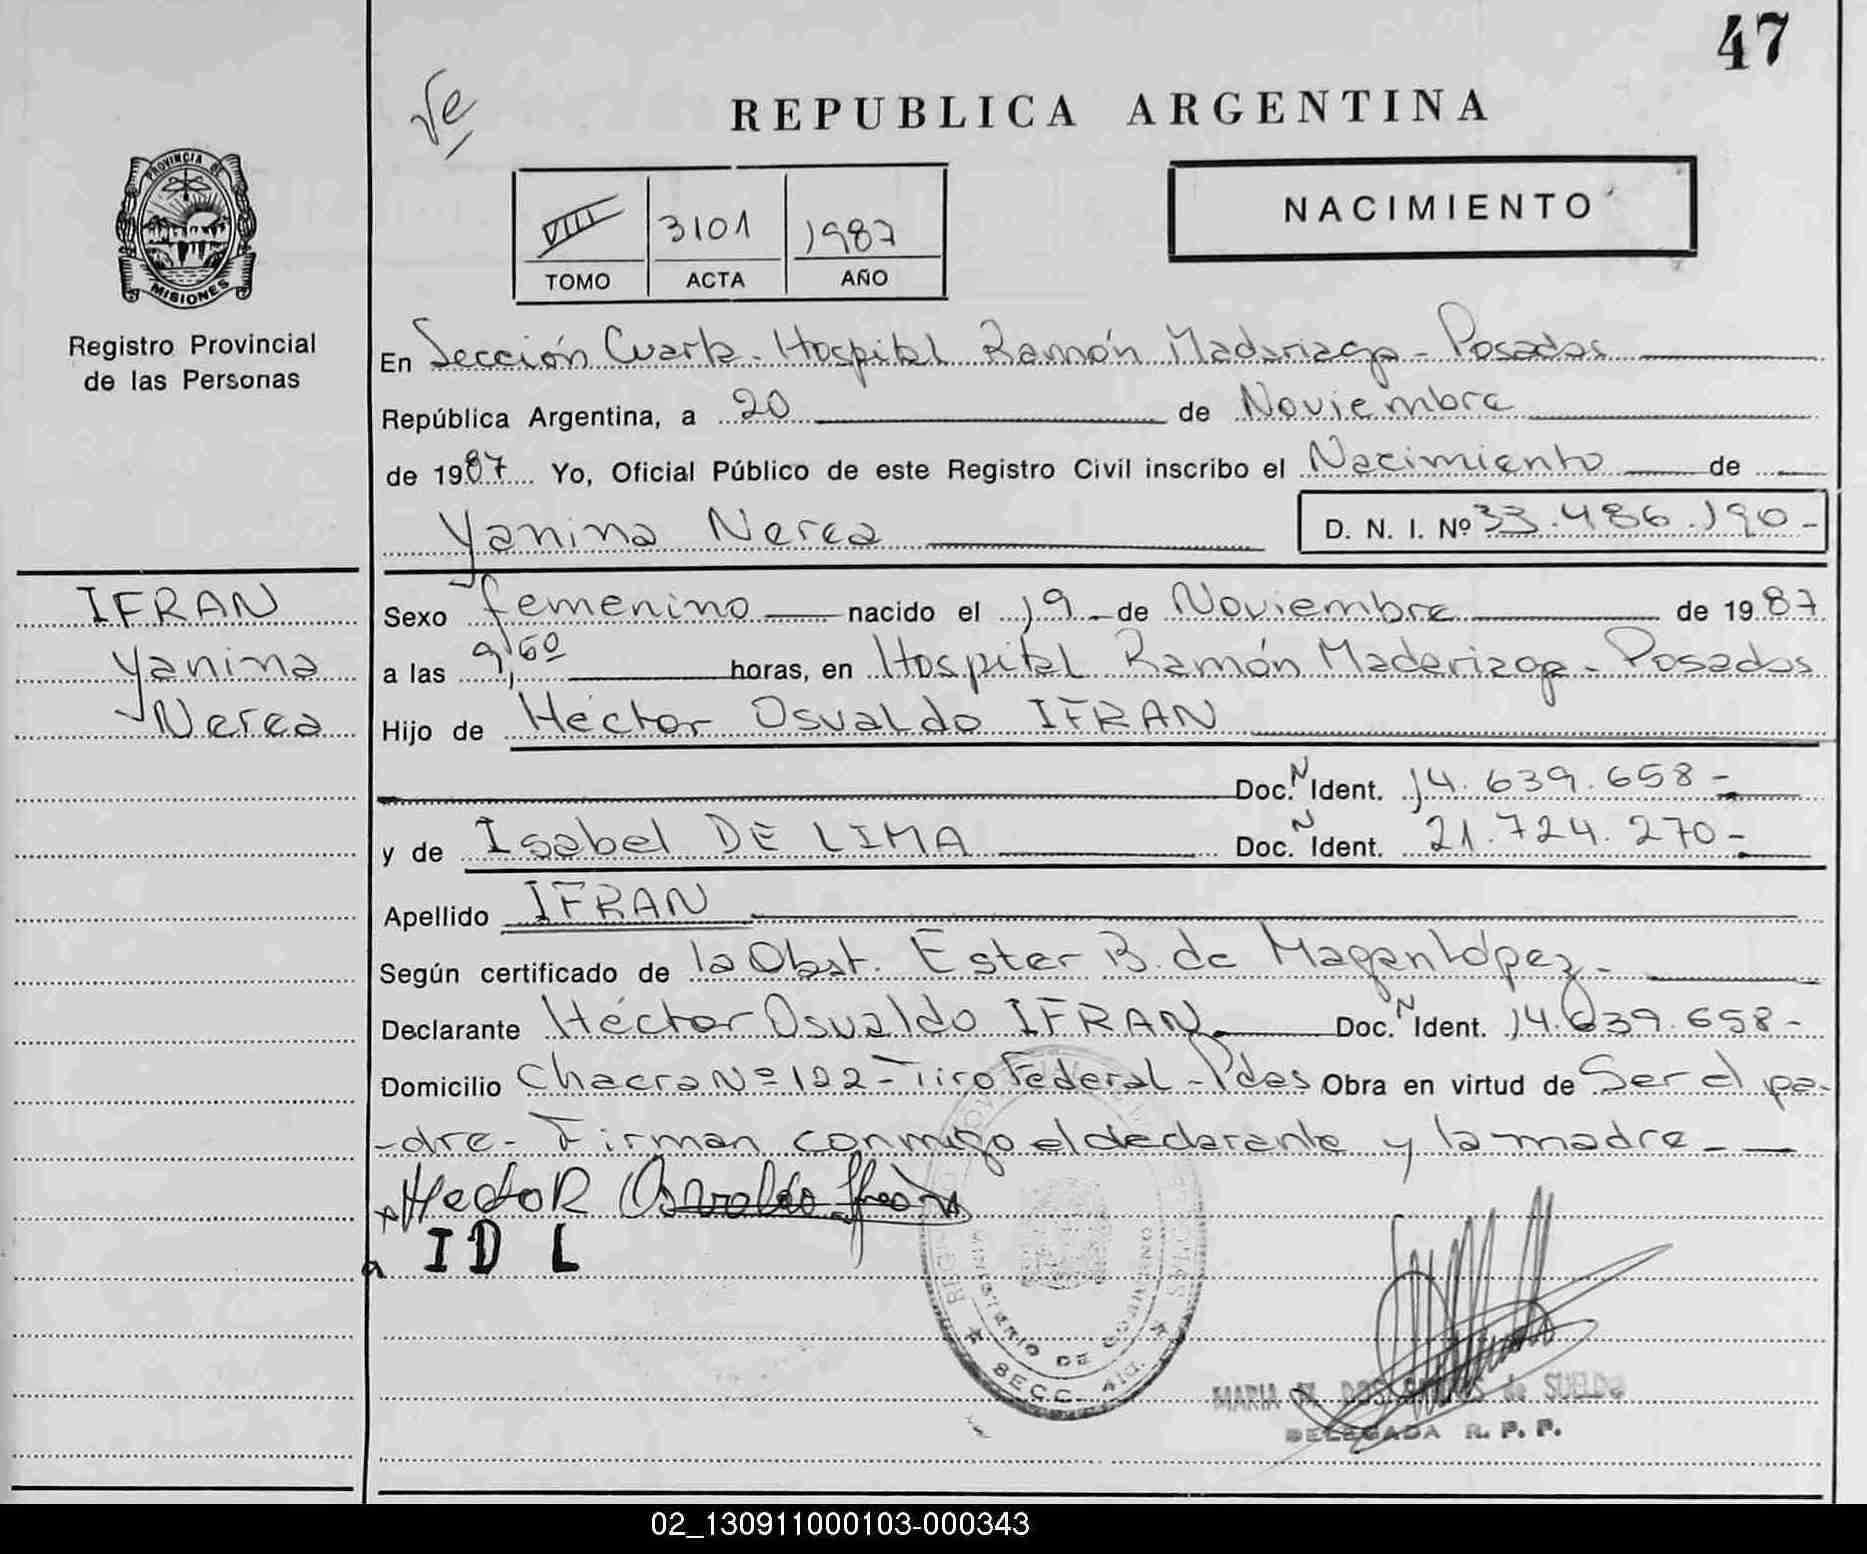 47
Ve
REPUBLICA ARGENTINA
PROVINCIA DE
MISIONES
Registro Provincial
de las Personas
VIII 3101 1987
TOMO ACTA AÑO
NACIMIENTO
En Sección Cuarta - Hospital Ramón Madariaga - Posadas
República Argentina, a 20 de Noviembre
de 1987 Yo, Oficial Público de este Registro Civil inscribo el Nacimiento de
Yanina Nerea D. N. I. Nº 33.486.190-
IFRAN
Yanina
Nerea
Sexo femenino nacido el 19 de Noviembre de 1987
a las horas, en Hospital Ramón Madariaga - Posadas
Hijo de Héctor Osvaldo IFRAN
Doc. N Ident. 14.639.658-
y de Isabel DE LIMA Doc. N Ident. 21.724.270-
Apellido IFRAN
Según certificado de la Obst. Ester B. de
Declarante Héctor Osvaldo IFRAN Doc. N Ident. 14.639.658-
Domicilio Chacra Nº 122 - Tiro Federal - Pdas Obra en virtud de Ser el pa-
-dre- Firman conmigo el declarante y la madre-
Hector Osvaldo Ifran
a I D L
MINISTERIO DE GOBIERNO
SECC. 4ta.
MARIA DOS SANTOS de SUELDO
DELEGADA R. P. P.
02_130911000103-000343